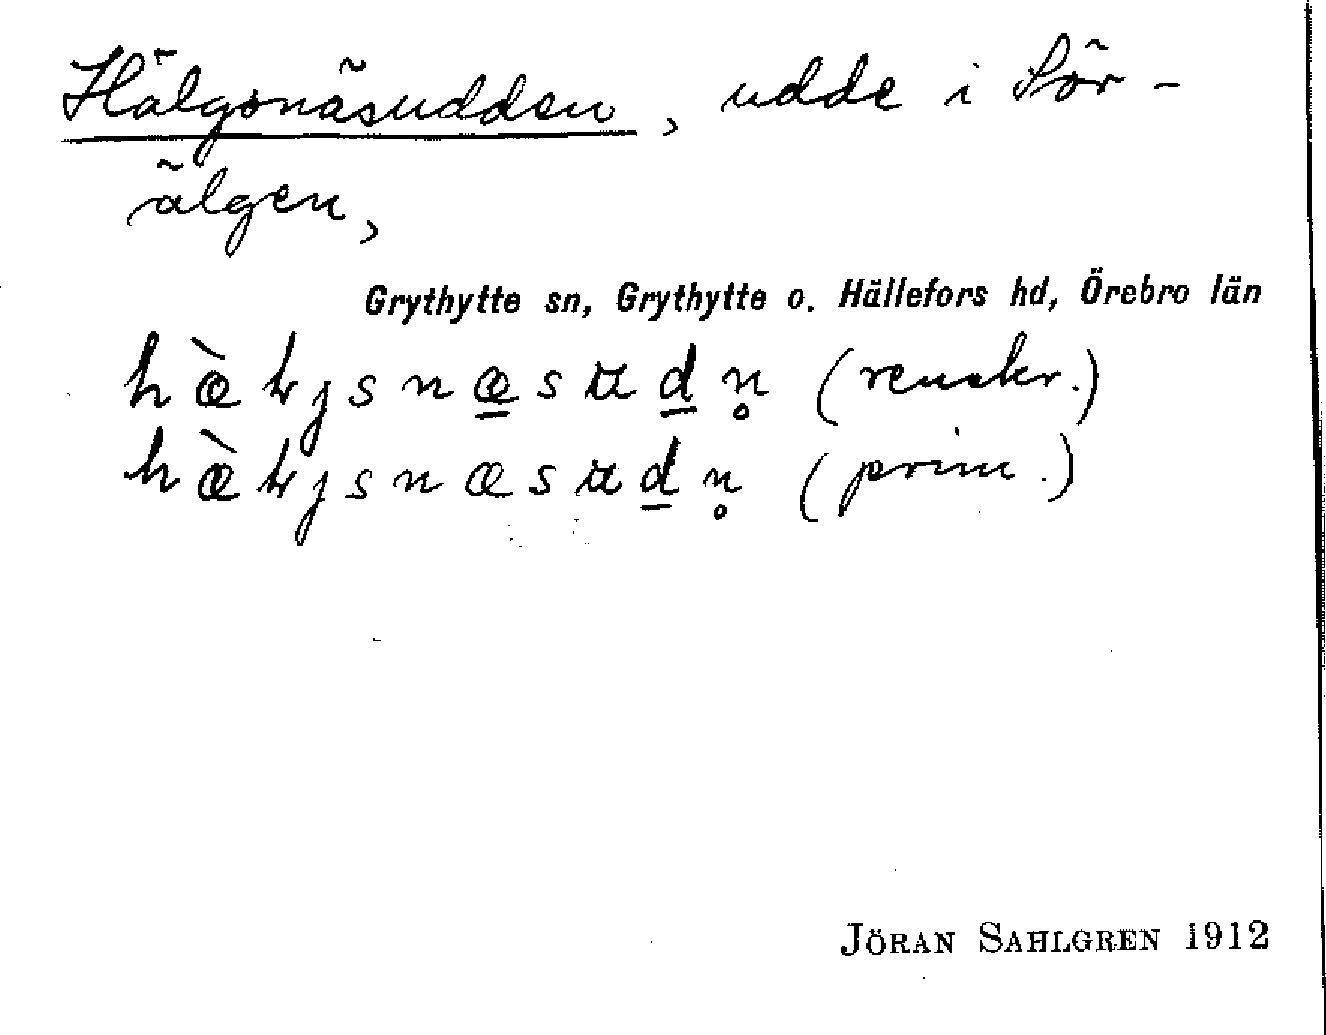 Hälgsnäsudden, udde i Sör-
älgen,
Grythytte sn, Grythytte o. Hällefors hd, Örebro län
hæ̀łjsnæ̱sud̲n̥ (renskr.)
hæ̀łjsnæsud̲n̥ (prim.)
JÖRAN SAHLGREN 1912